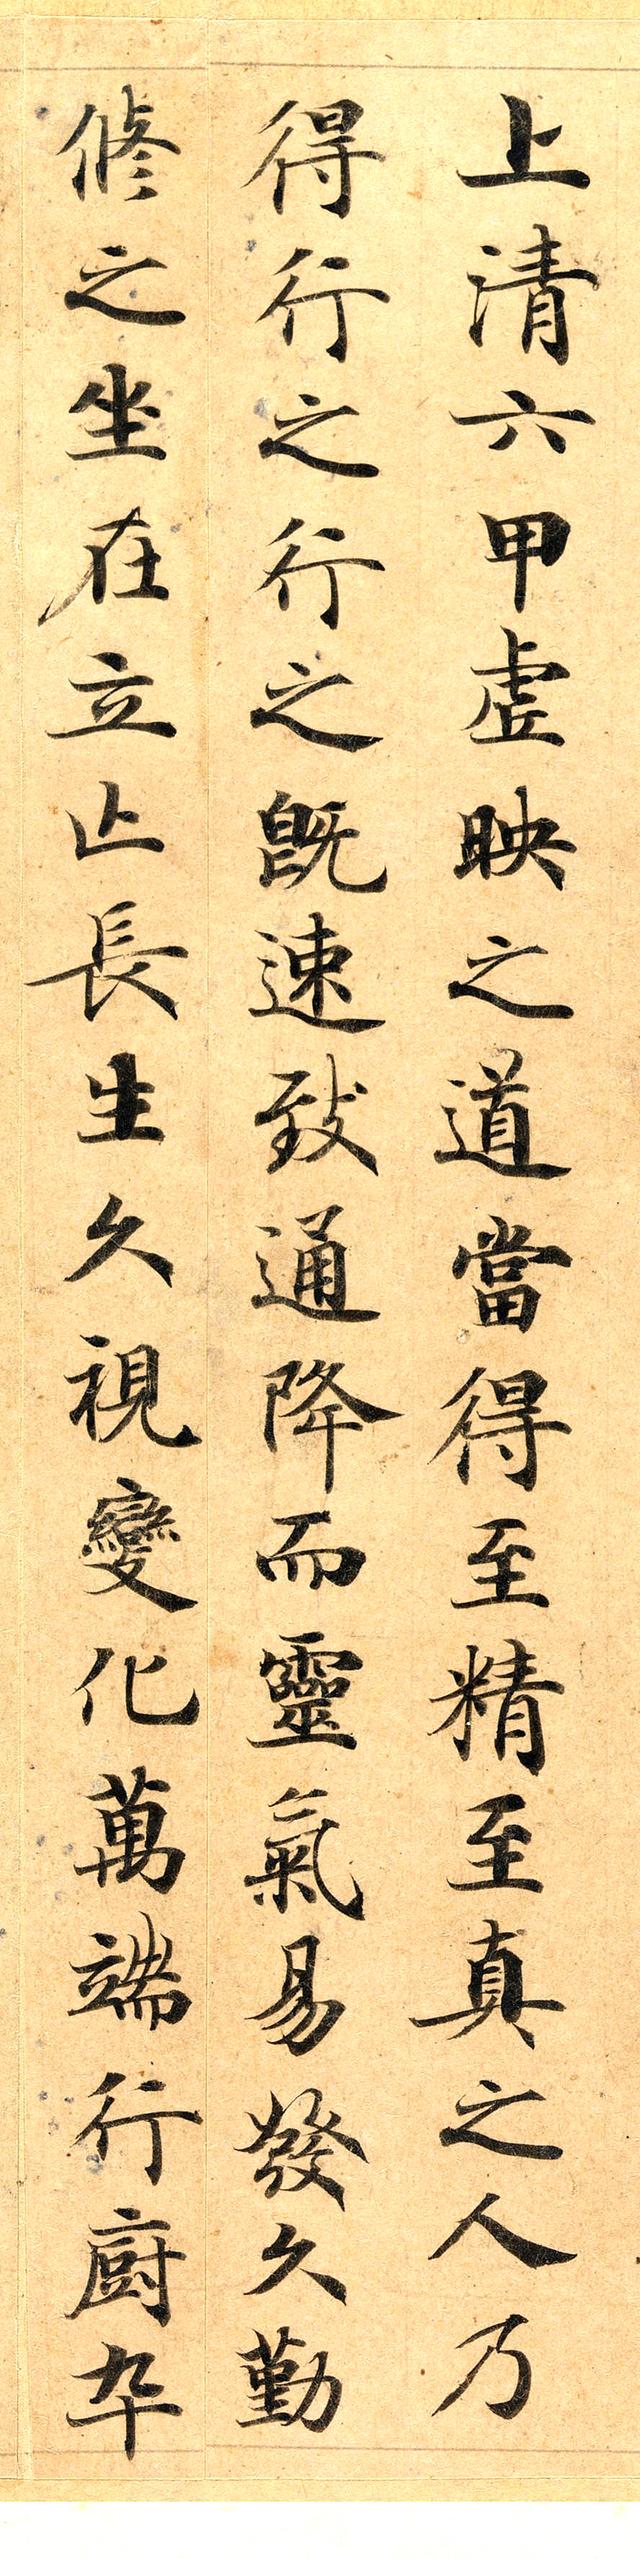 上清六甲虛映之道當得至精至真之人乃
得行之行之既速致通降而靈氣易發久勤
修之坐在立亡長生久視變化萬端行廚卒